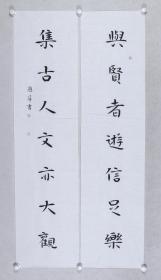 與賢者遊信足樂
集古人文亦大觀